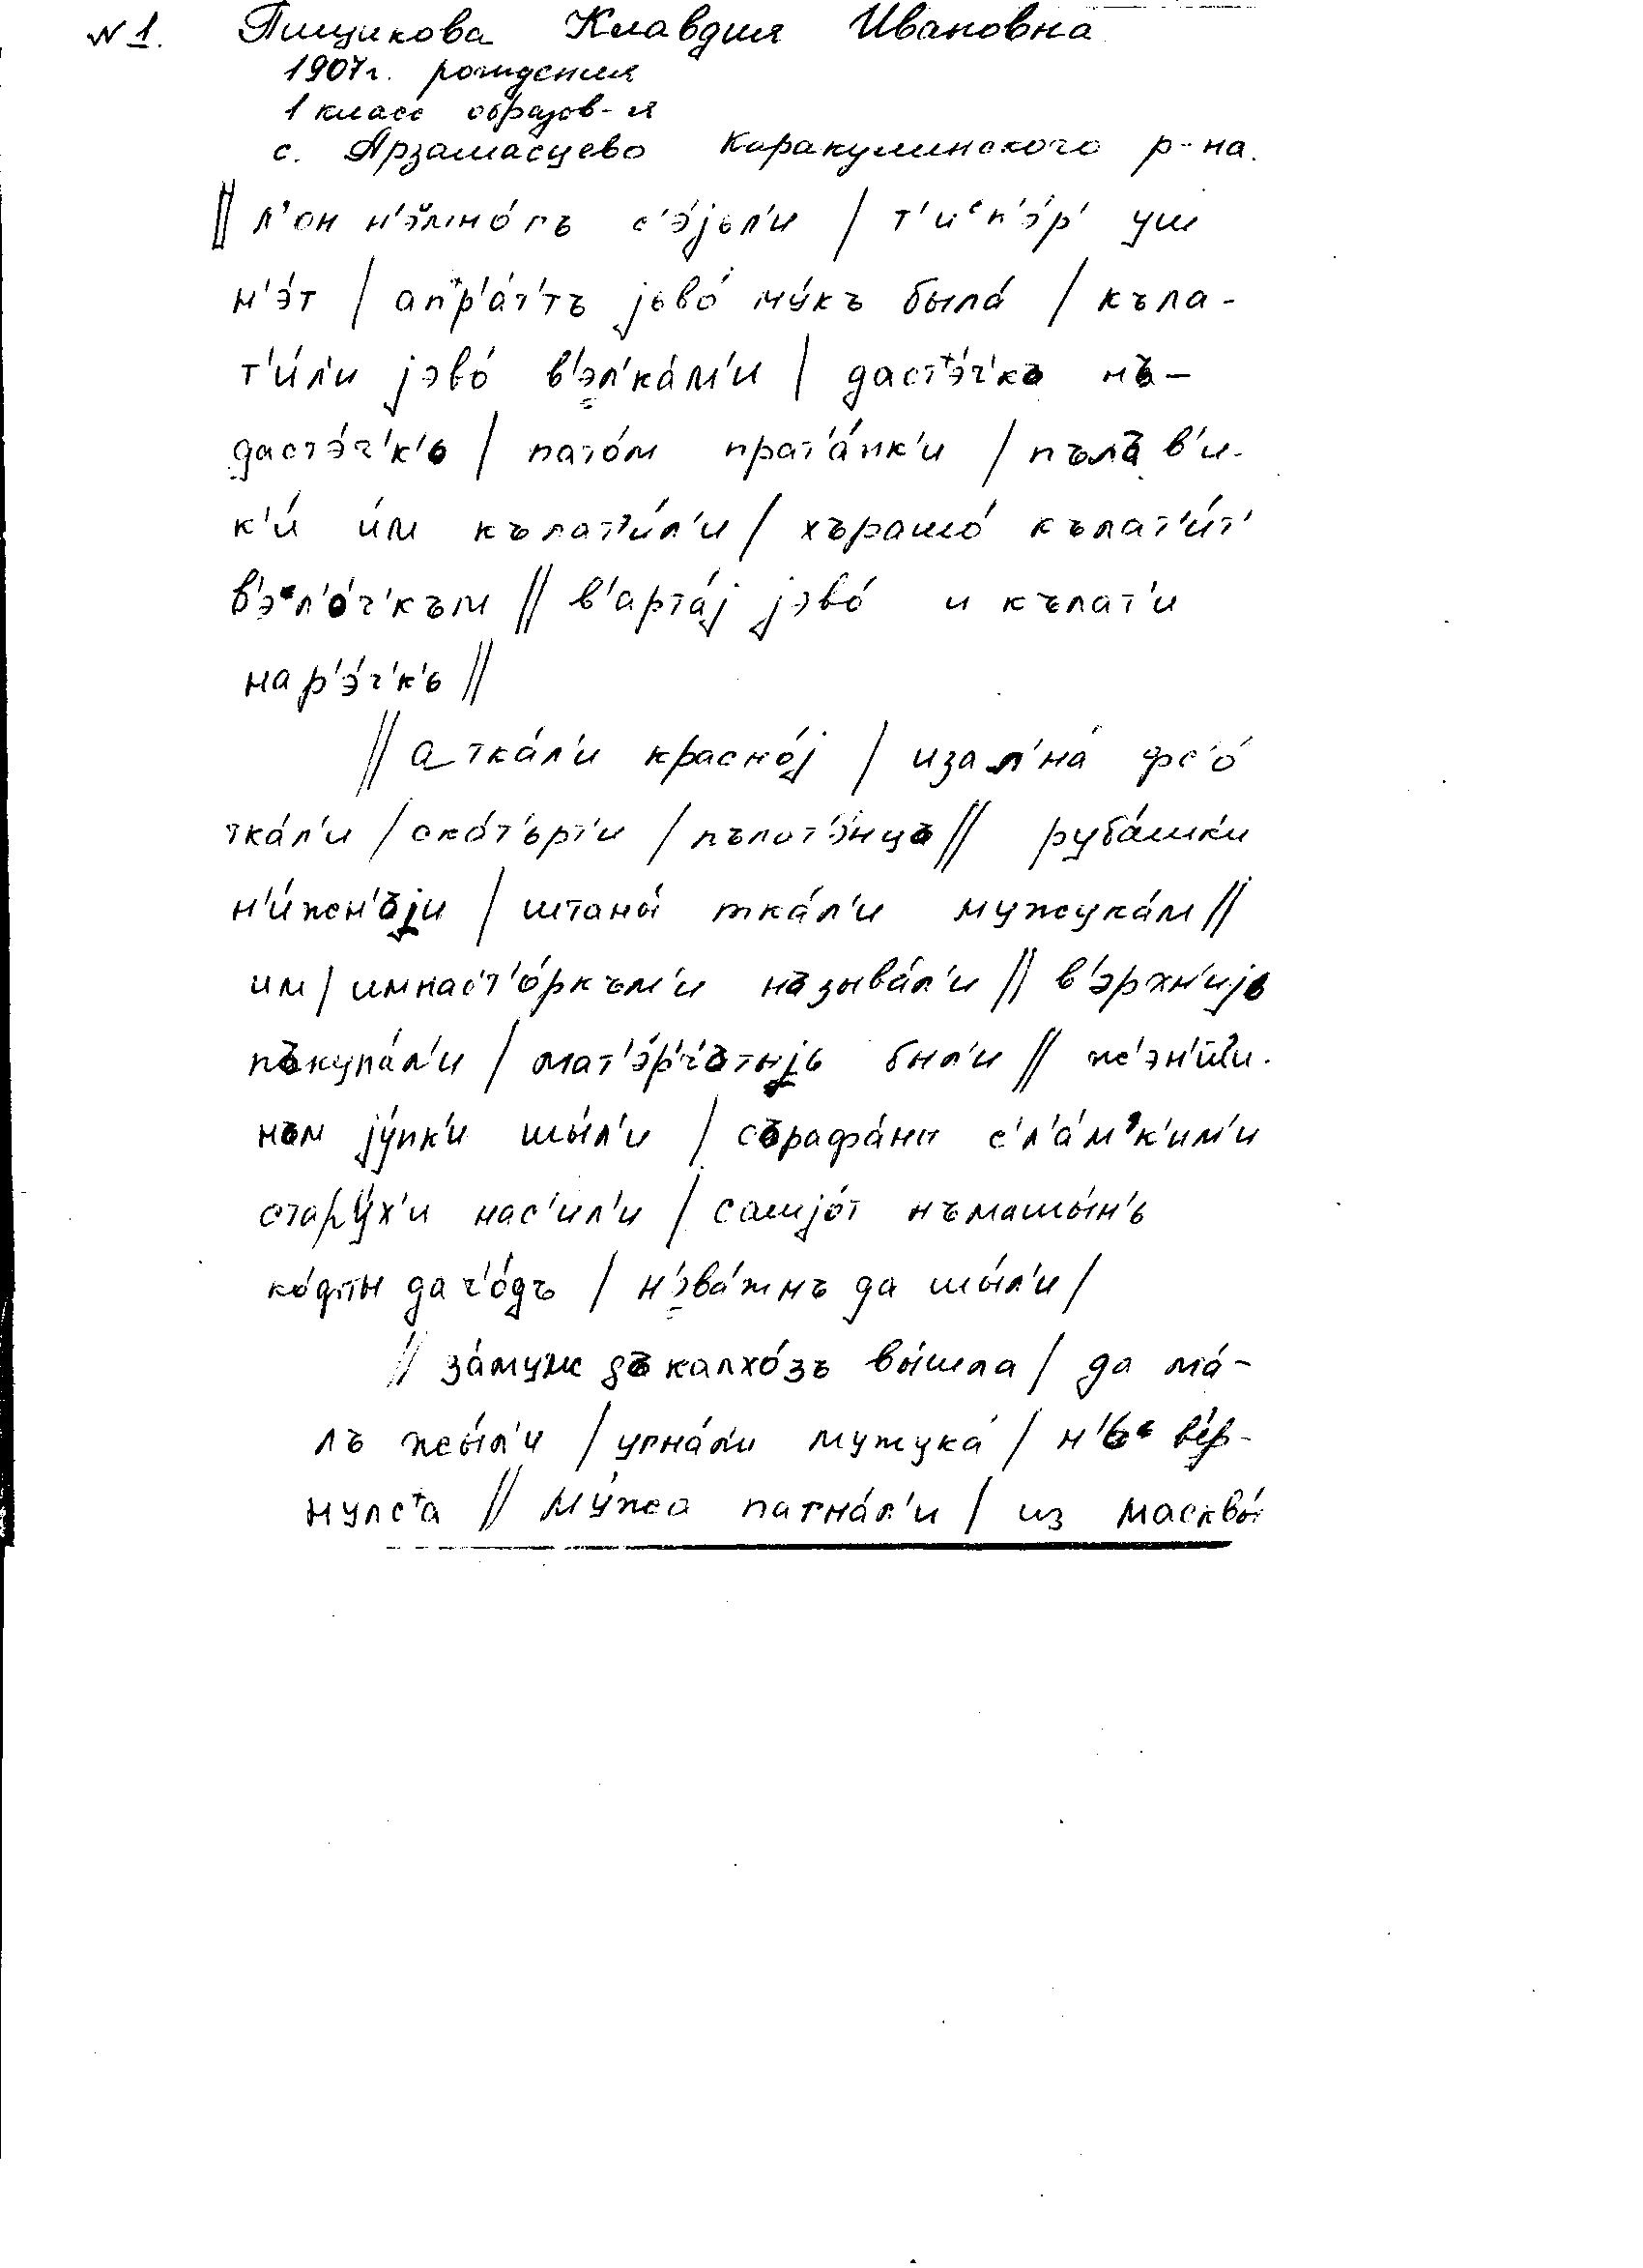 №1. Пищикова Клавдия Ивановна
1907г. рождения
1 класс образов-я
с. Арзамасцево Каракулинского р-на.
|| л'он н'э́мно́гъ с'э́јьл'и / т'иᵉп'э́р' уш
н'э́т / апр'а́т'тъ јьво́ му́къ была́ / къла-
т'и́л'и јэво́ в'эл'ка́м'и / даст'э́ч'къ нъ-
дастэ́ч'к'ь / пато́м прат'а́пк'и / пълъв'и-
к'и́ и́м кълат'и́л'и / хърашо́ кълат'и́т'
в'эᵉл'о́ч'към || в'арта́ј јэво́ и кълат'и
нар'э́ч'к'ь ||
|| а тка́л'и красно́ј / изал'на́ фс'о́
тка́л'и / ска́т'ьрт'и / пълат'э́нцъ || руба́шк'и
н'и́жн'ъји / штаны́ тка́л'и мужука́м ||
им / имнаст'о́ркъм'и нъзыва́л'и || в'э́рхн'ијь
пъкупа́л'и / мат'э́р'ч'ътыјь был'и || ж'э́н'шши-
нъм jу́пк'и шы́л'и / сърафа́ны с'л'а́мк'им'и
стару́х'и нас'ил'и / сашјо́т нъмашы́н'ь
ко́фты да ч'о́дъ / н'эва́жнъ да шы́л'и /
|| за́муж дъкалхо́зъ вы́шла / да ма́-
лъ жы́л'и / угна́л'и мужука́ / н'ьᵉ ве́р-
нулс'а || му́жа пагна́л'и / из масквы́